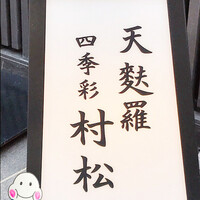 天麩羅
四季彩 村松